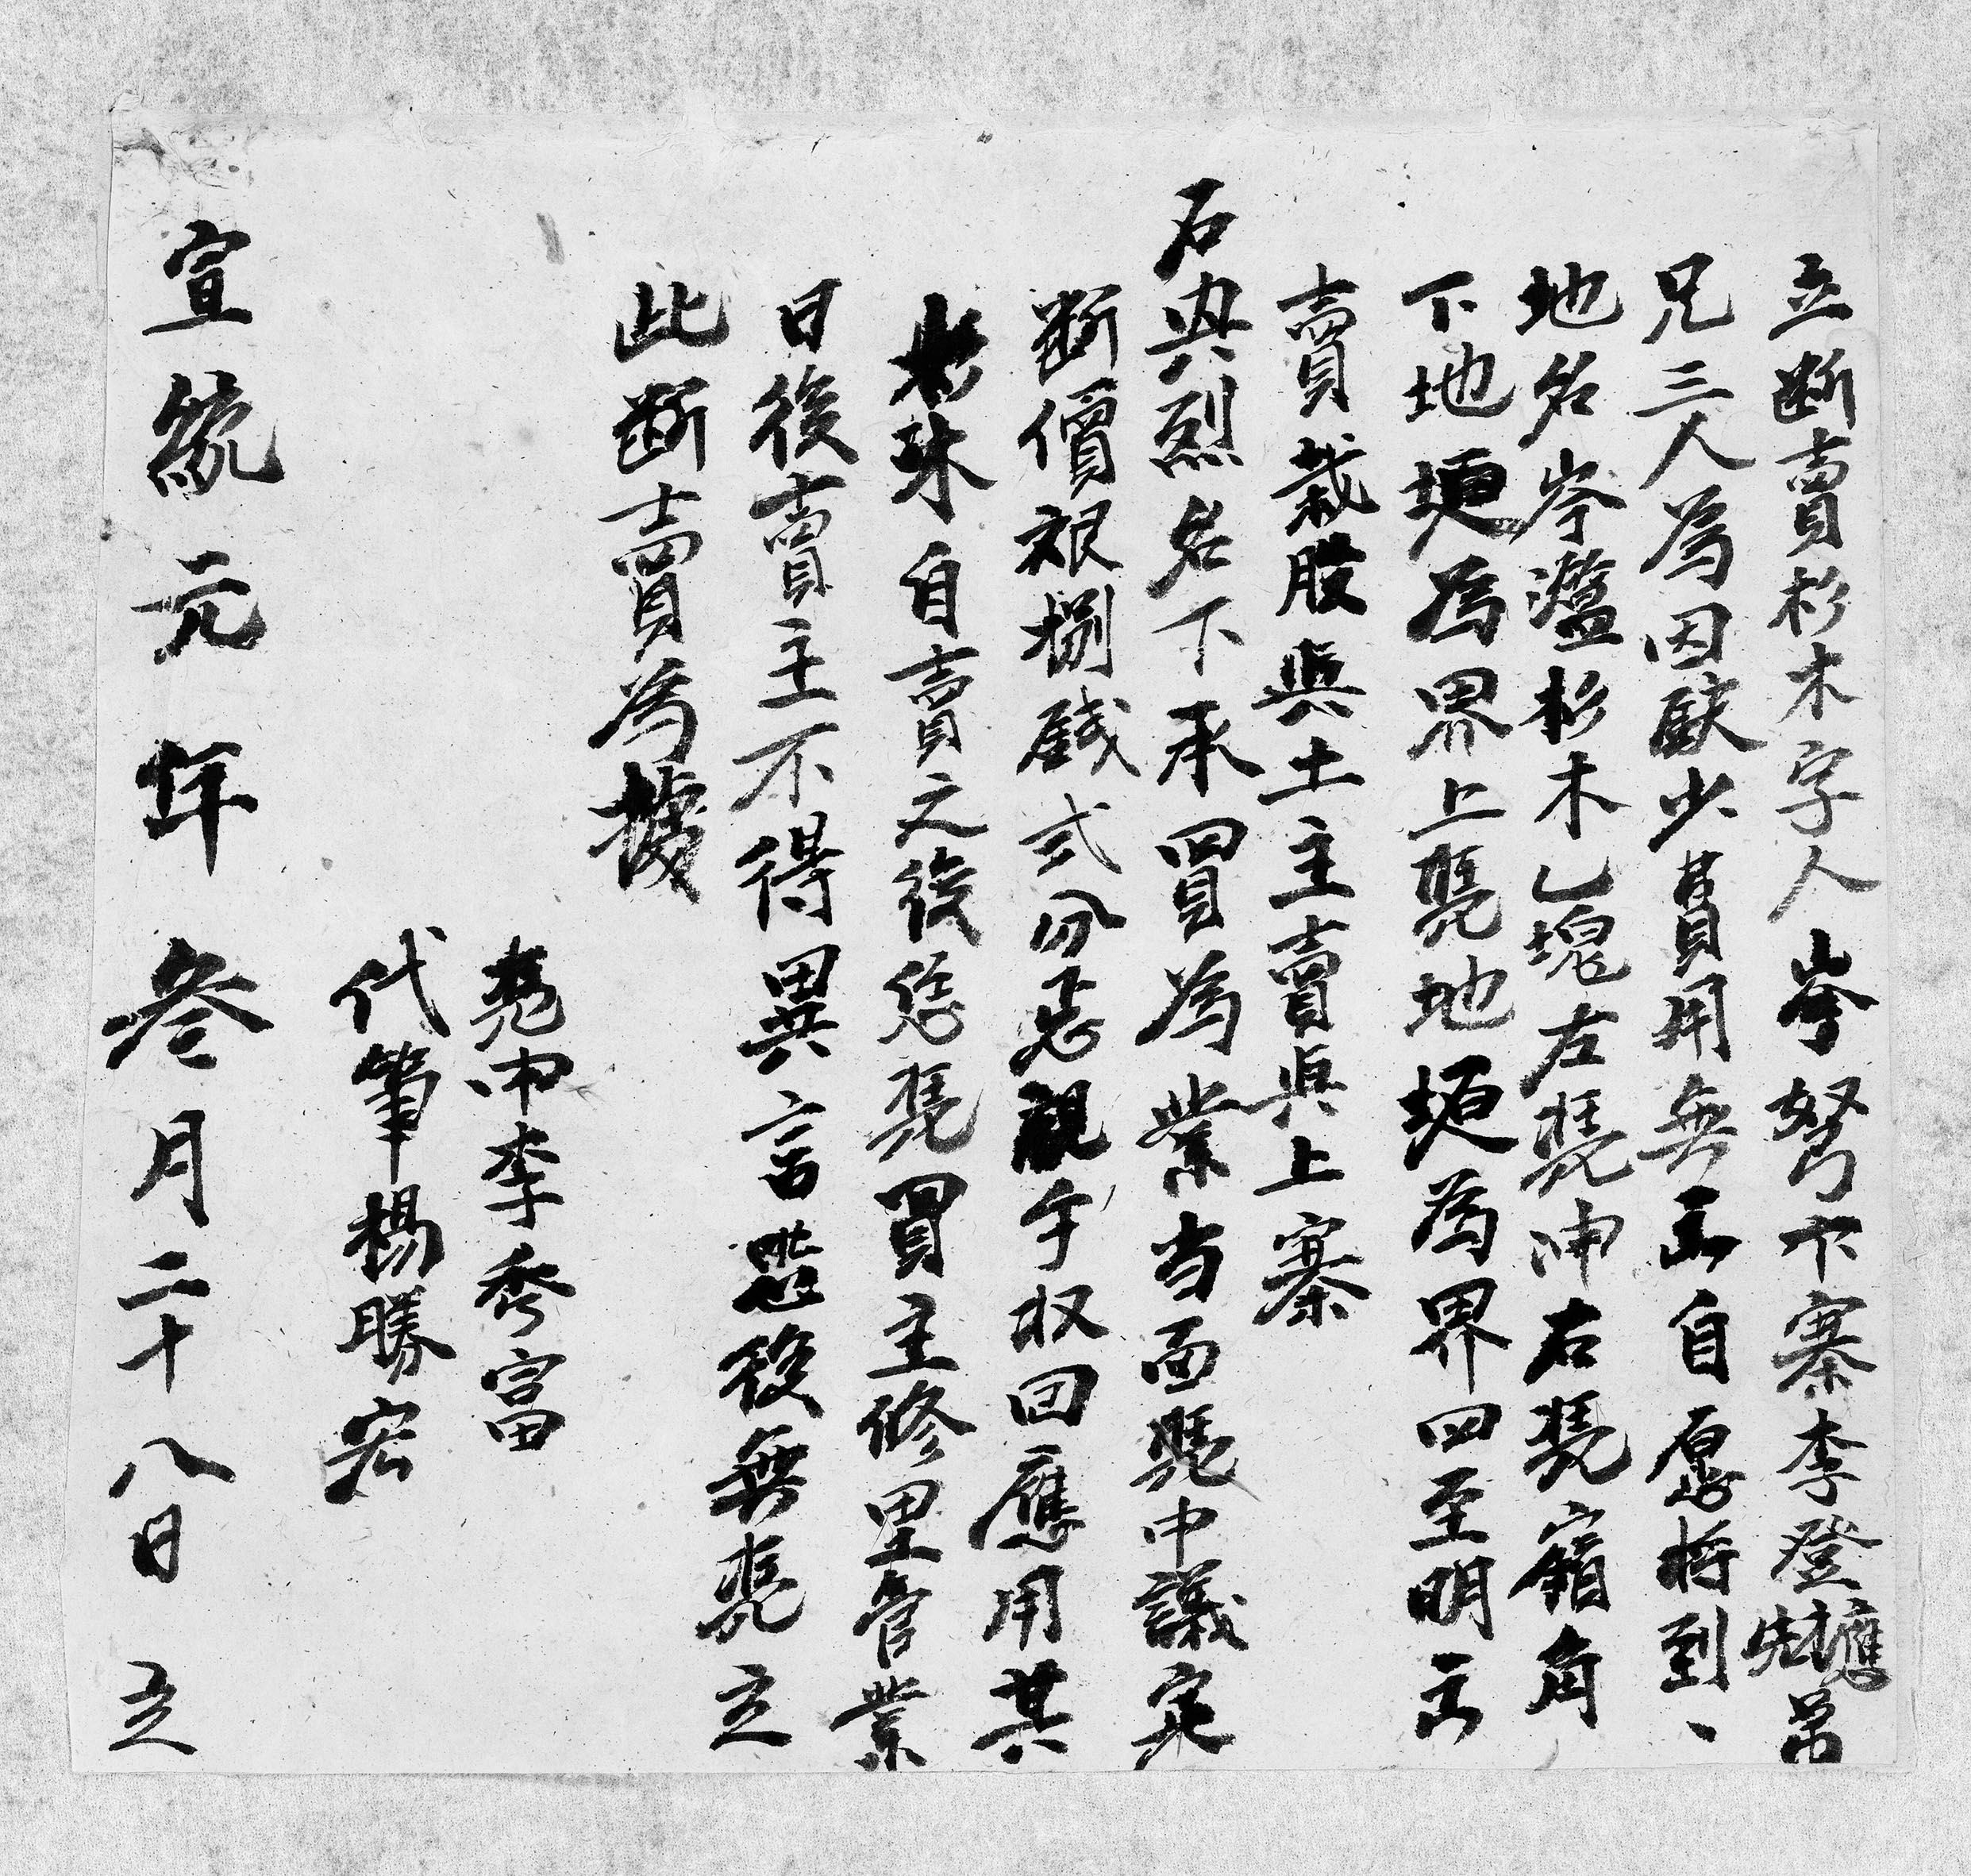 立断賣杉木字人岑孥下寨李登先㯋吊
兄三人為因缺少費用無出自愿將到、
地名岑灆杉木乙塊左凴冲右凴嶺角
下地埂為界上凴地埂為界四至明白
賣栽股與土主賣與上寨
石興烈名下承買為業当面凴中議定
断價銀捌錢弍分忥親手收回應用其
杉木自賣之後恁凴買主修里管業
日後賣主不得異言恐後無凴立
此断賣為據
凴中李秀富
代筆楊勝宏
宣統元年叁月二十八日 立